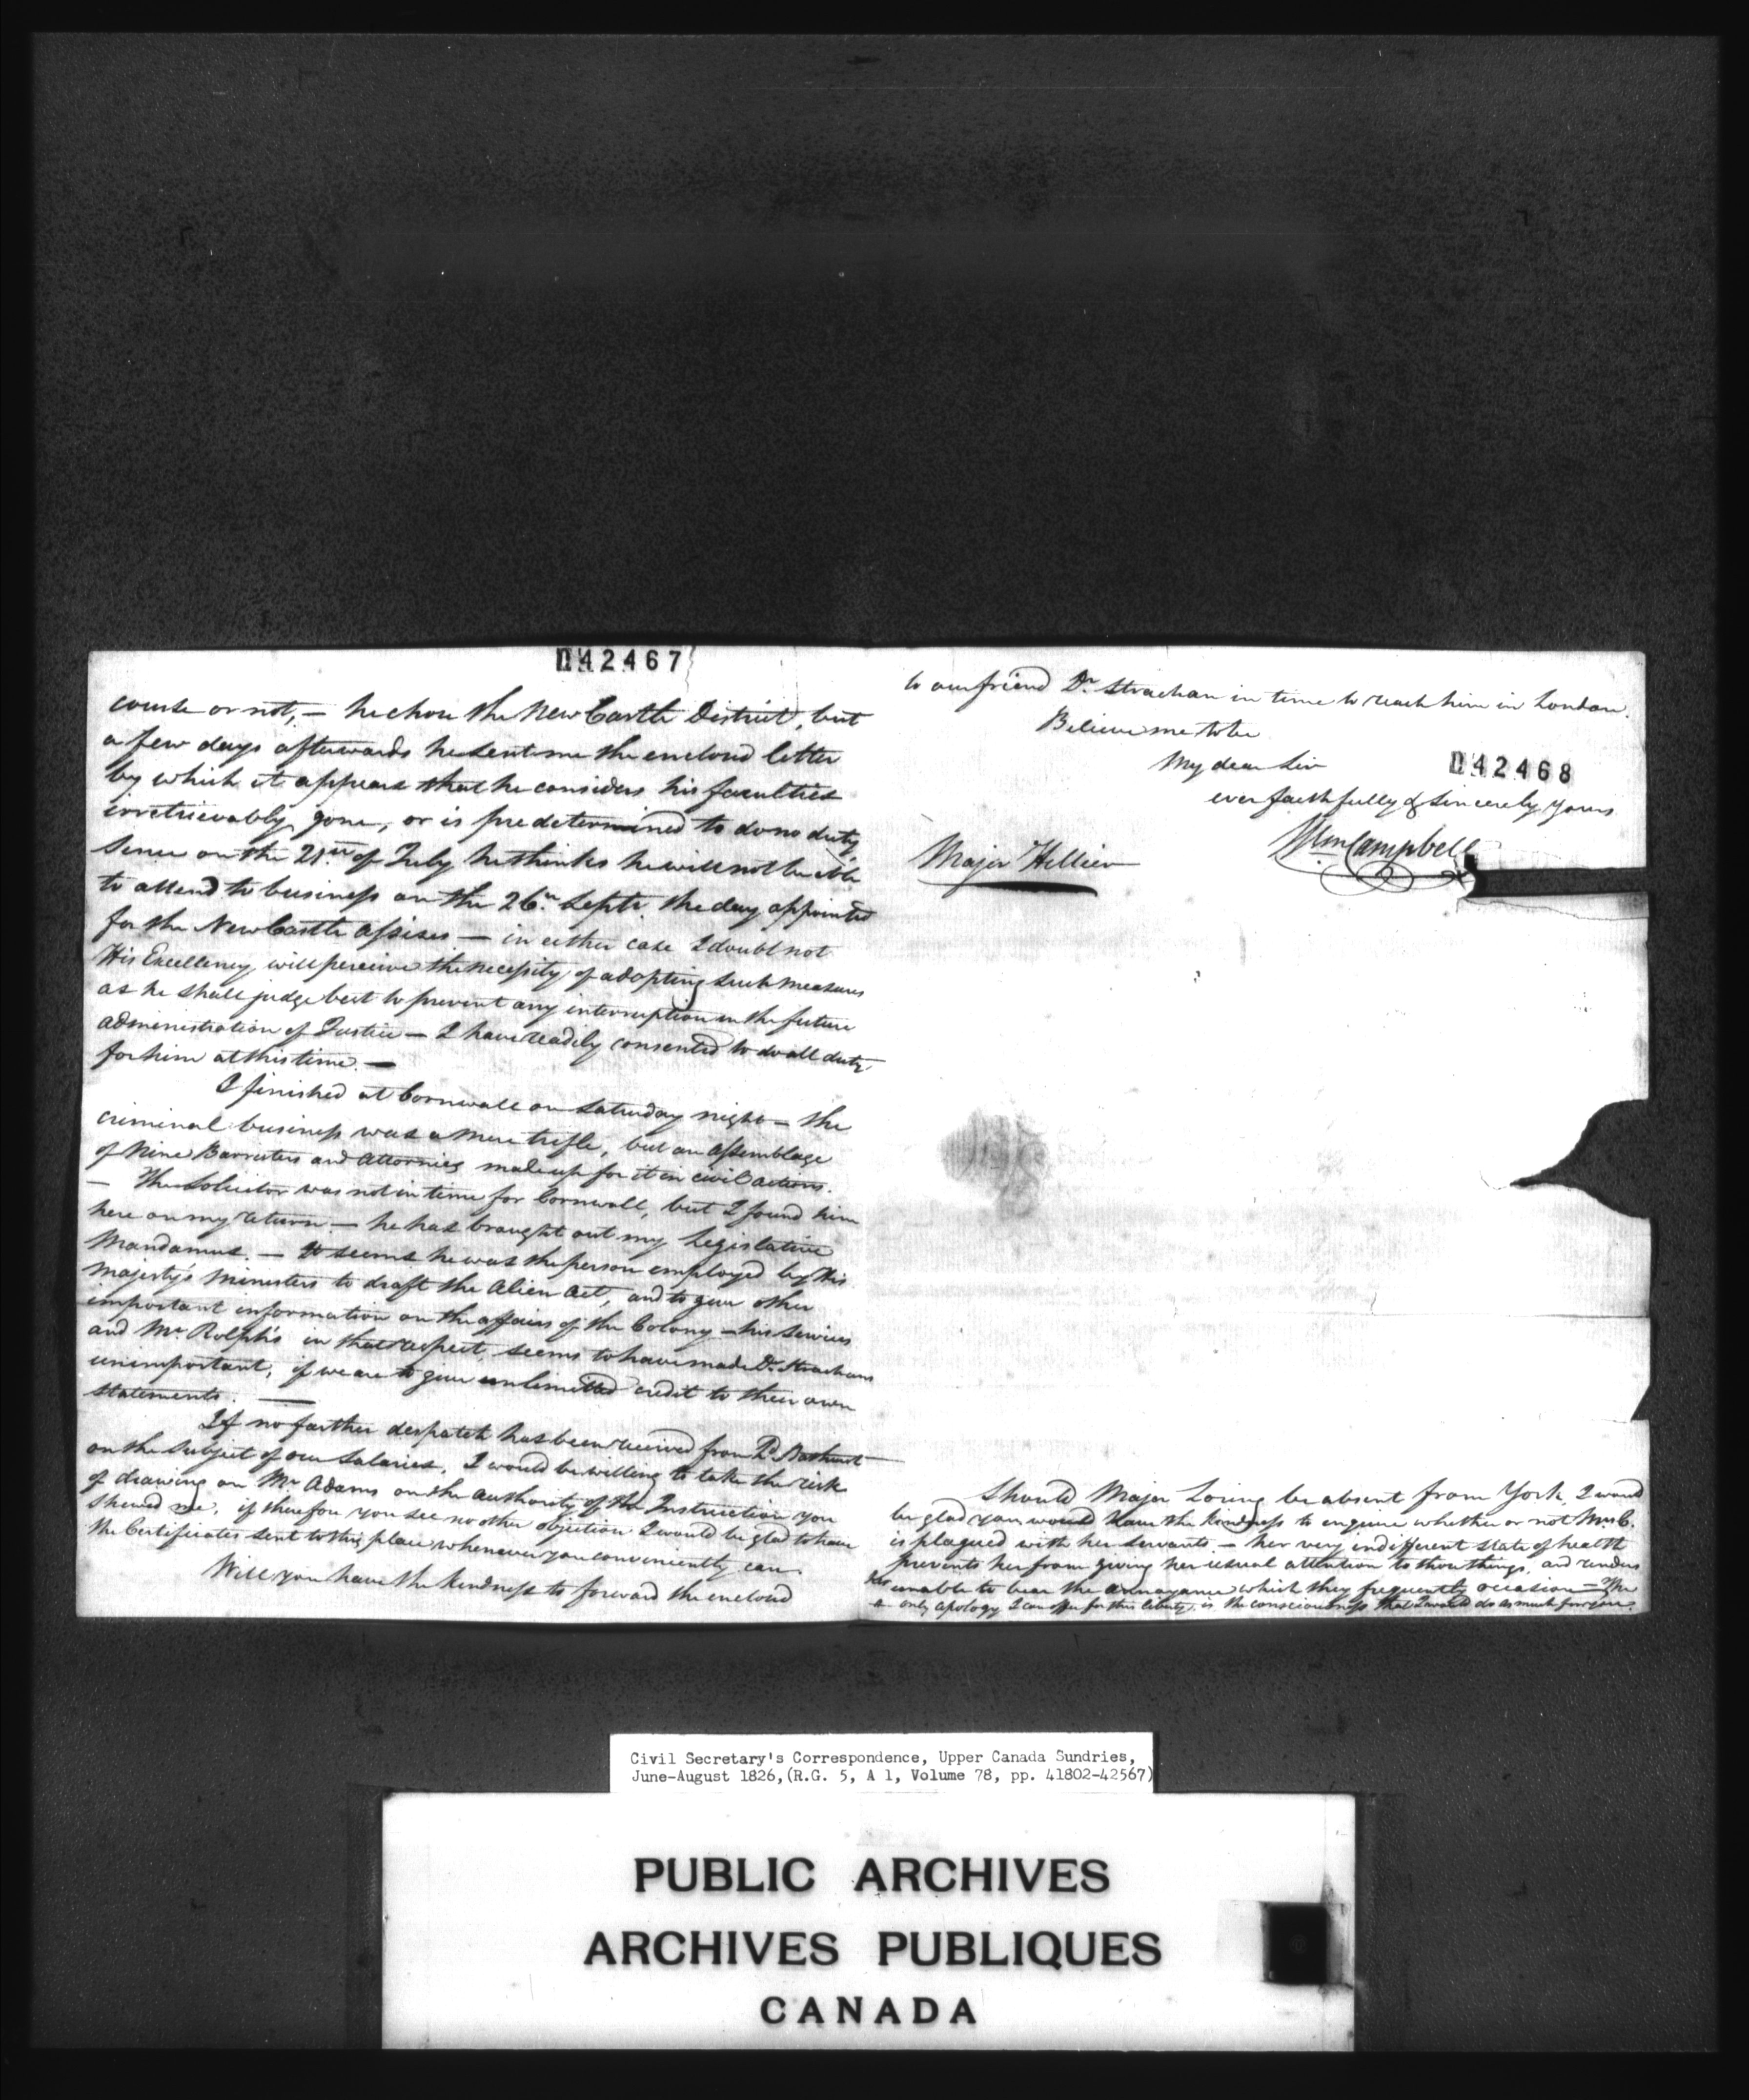 042467
course or not, — he chose the New Castle District, but
a few days afterwards he sent me the enclosed letter
by which it appears that he considers his faculties
irretrievably gone, or is predetermined to do no duty
since on the 21st of July he thinks he will not be able
to attend to business on the 26th Septr. the day appointed
for the New Castle Assises — in either case I doubt not
His Excellency will perceive the necessity of adopting such measures
as he shall judge best to prevent any interruption in the future
administration of Justice — I have readily consented to do all duty
for him at this time. —
I finished at Cornwall on Saturday night — the
criminal business was a mere trifle, but an assemblage
of Nine Barristers and Attornies made up for it in civil actions.
— The Solicitor was not in time for Cornwall, but I found him
here on my return — he has brought out my Legislative
Mandamus. — It seems he was the person employed by His
Majesty's Ministers to draft the Alien Act, and to give other
important information on the affairs of the Colony — his services
and Mr. Rolph's in that respect, seems to have made Dr. Strachans
unimportant, if we are to give unlimitted credit to their own
statements. —
If no farther despatch has been received from Ld Bathurst
on the subject of our Salaries, I would be willing to take the risk
of drawing on Mr. Adams on the authority of the Instruction you
shewed me, if therefore you see no other objection I would be glad to have
the Certificates sent to this place whenever you conveniently can.
Will you have the kindness to forward the enclosed
to our friend Dr. Strachan in time to reach him in London.
Believe me to be
My dear Sir
042468
ever faithfully & sincerely yours
Wm Campbell
Major Hillier
Should Major Loring be absent from York, I would
be glad you would have the kindness to enquire whether or not Mrs C.
is plagued with her servants. — her very indifferent state of health
prevents her from giving her usual attention to those things, and renders
her unable to bear the annoyance which they frequently occasion — The
only apology I can offer for this liberty, is the consciousness that I would do as much for you.
Civil Secretary's Correspondence, Upper Canada Sundries,
June-August 1826, (R.G. 5, A 1, Volume 78, pp. 41802-42567)
PUBLIC ARCHIVES
ARCHIVES PUBLIQUES
CANADA